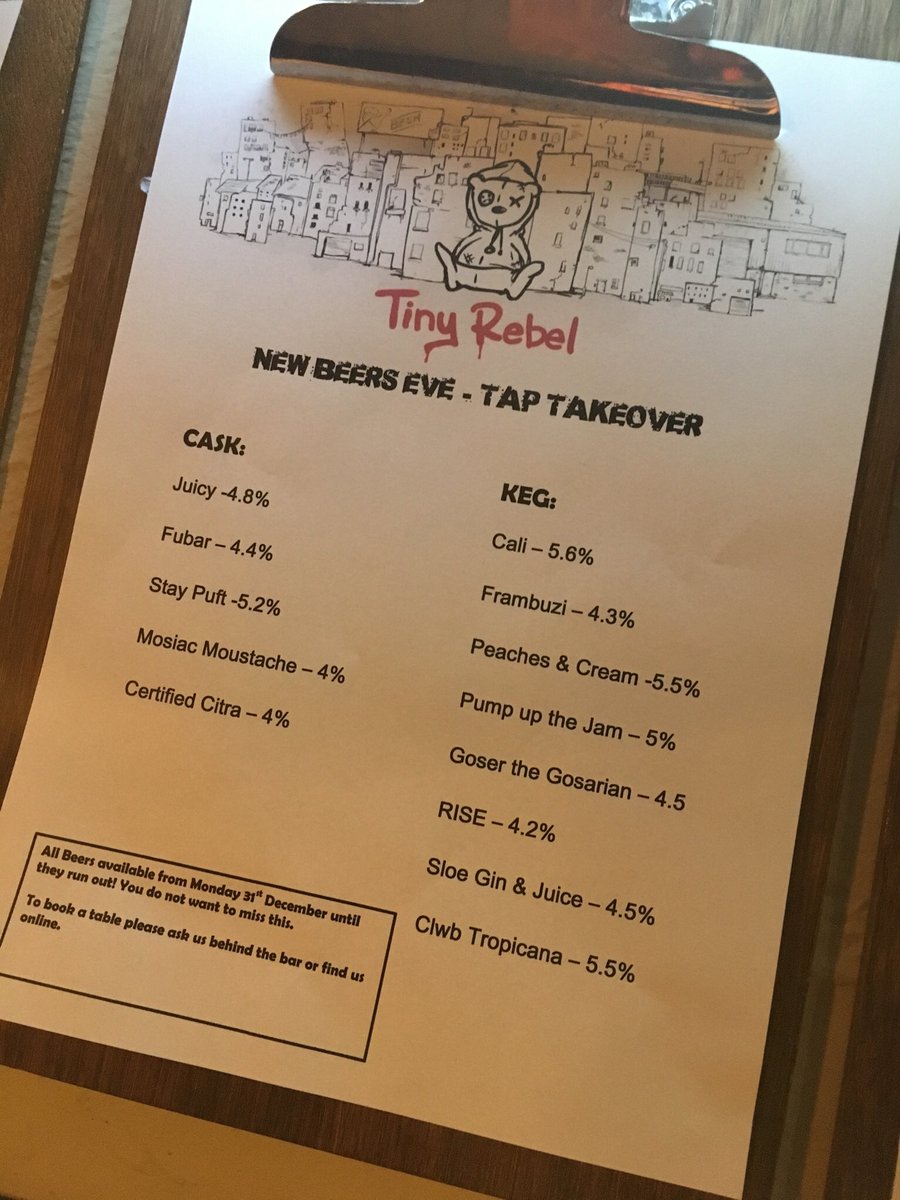 Tiny Rebel
NEW BEERS EVE - TAP TAKEOVER
CASK:
Juicy -4.8%
Fubar – 4.4%
Stay Puft -5.2%
Mosiac Moustache – 4%
Certified Citra – 4%
KEG:
Cali – 5.6%
Frambuzi – 4.3%
Peaches & Cream -5.5%
Pump up the Jam – 5%
Goser the Gosarian – 4.5
RISE – 4.2%
Sloe Gin & Juice – 4.5%
Clwb Tropicana – 5.5%
All Beers available from Monday 31st December until
they run out! You do not want to miss this.
To book a table please ask us behind the bar or find us
online.